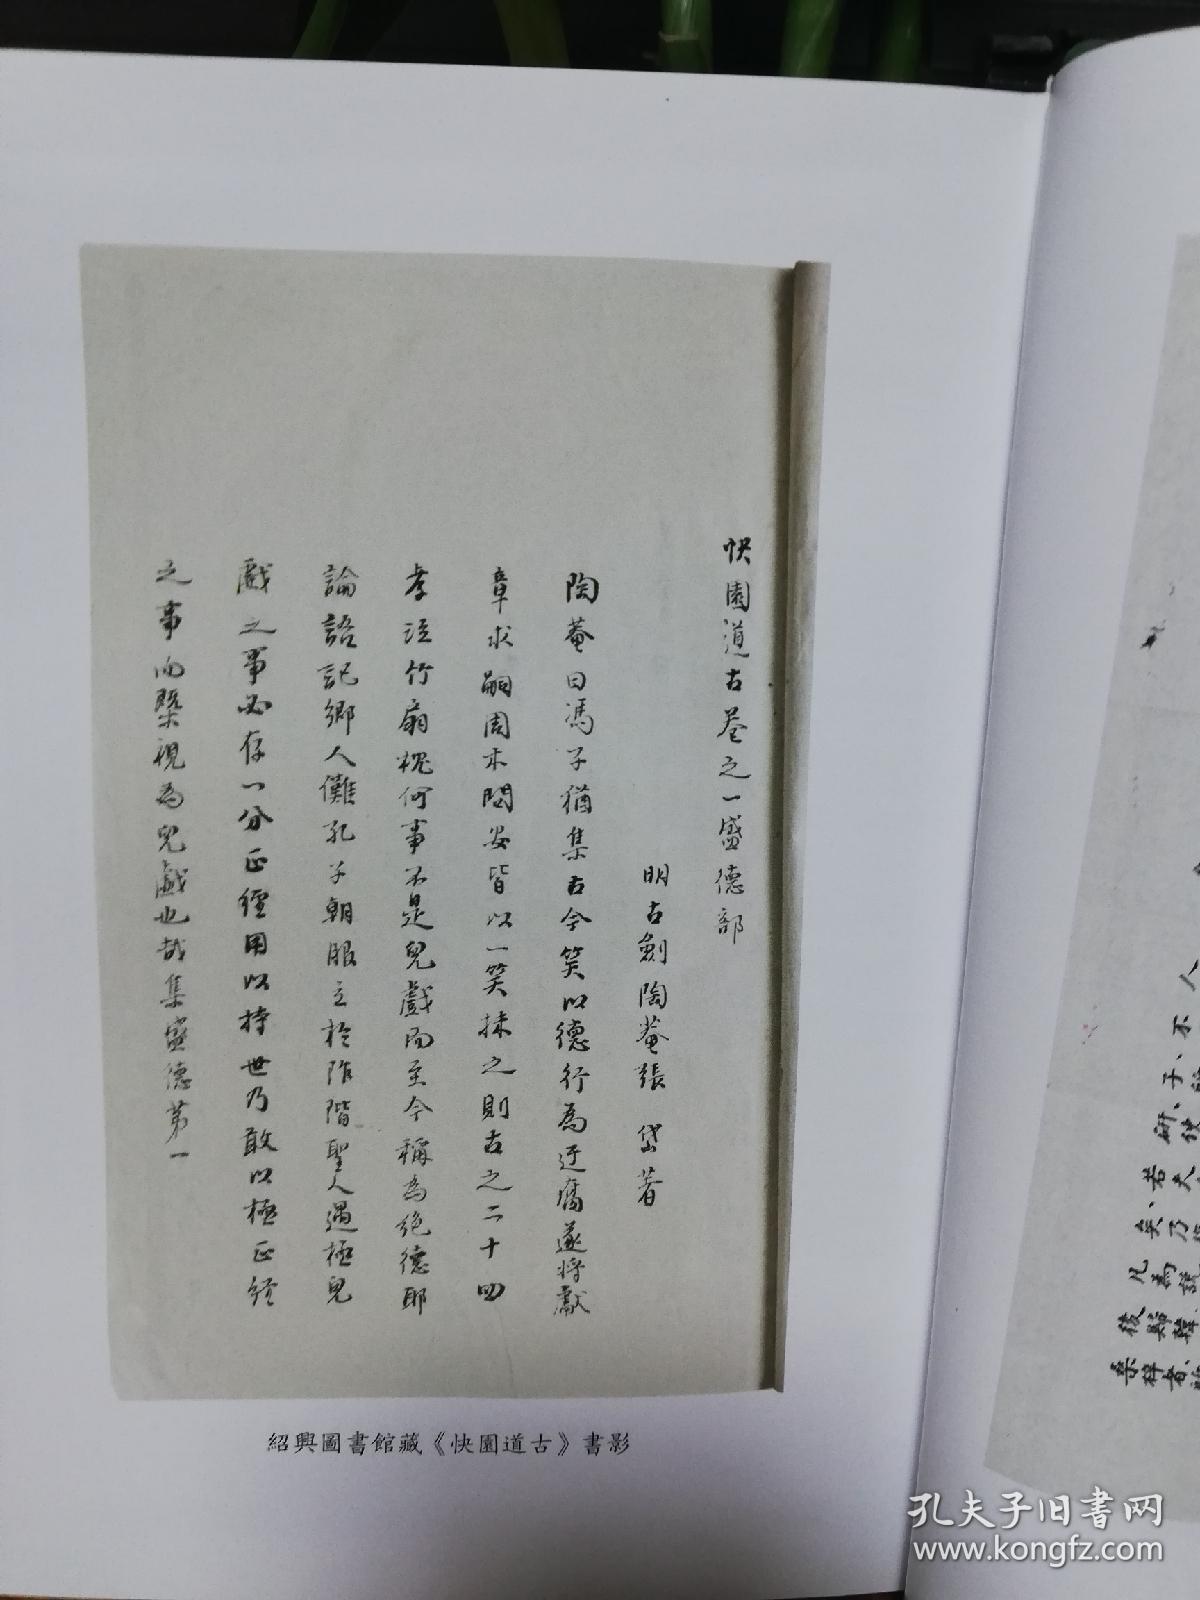 快園道古卷之一盛德部
明古劍陶菴張 岱著
陶菴曰馮子猶集古今笑以德行為迂腐遂將獻
章求嗣周木問安皆以一笑抹之則古之二十四
孝 竹扇 何事不是兒戲而至今稱為絶德耶
論語記鄉人儺孔子朝服立於阼階聖人遇極兒
戲之事必存一分正經用以持世乃敢以極正經
之事而槩視為兒戲也哉集盛德第一
紹興圖書館藏《快園道古》書影
孔夫子旧書网
www.kongfz.com